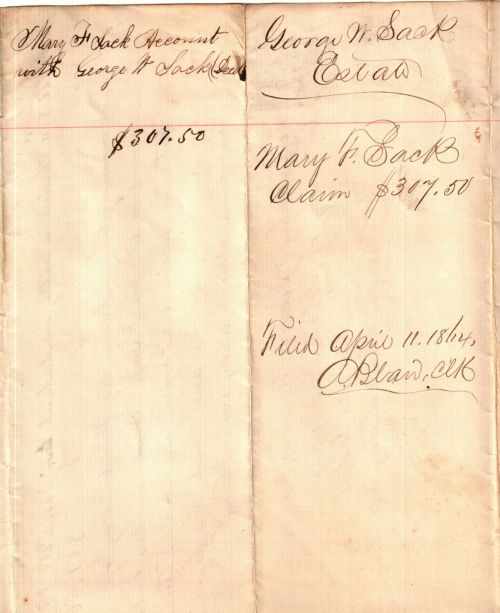 Mary F Sack Account
with George W Sack (Decd
$307.50
George W. Sack
Estate
Mary F. Sack
Claim $307.50
Filed April 11. 1874,
A. Blair, Clk